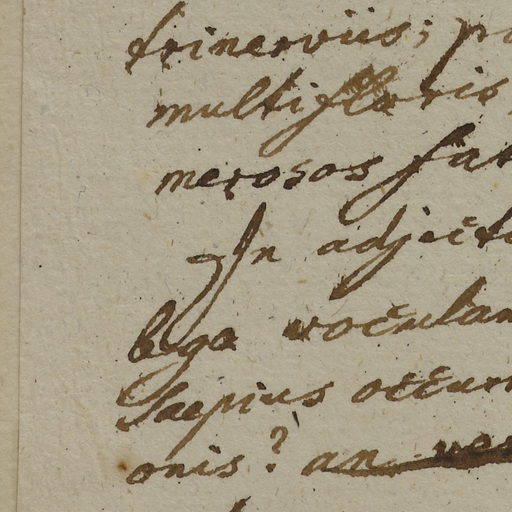 trinerviis; p
multifloris,
merosos fat
In adjecta
bega voculam
Saepius occur
onis? an